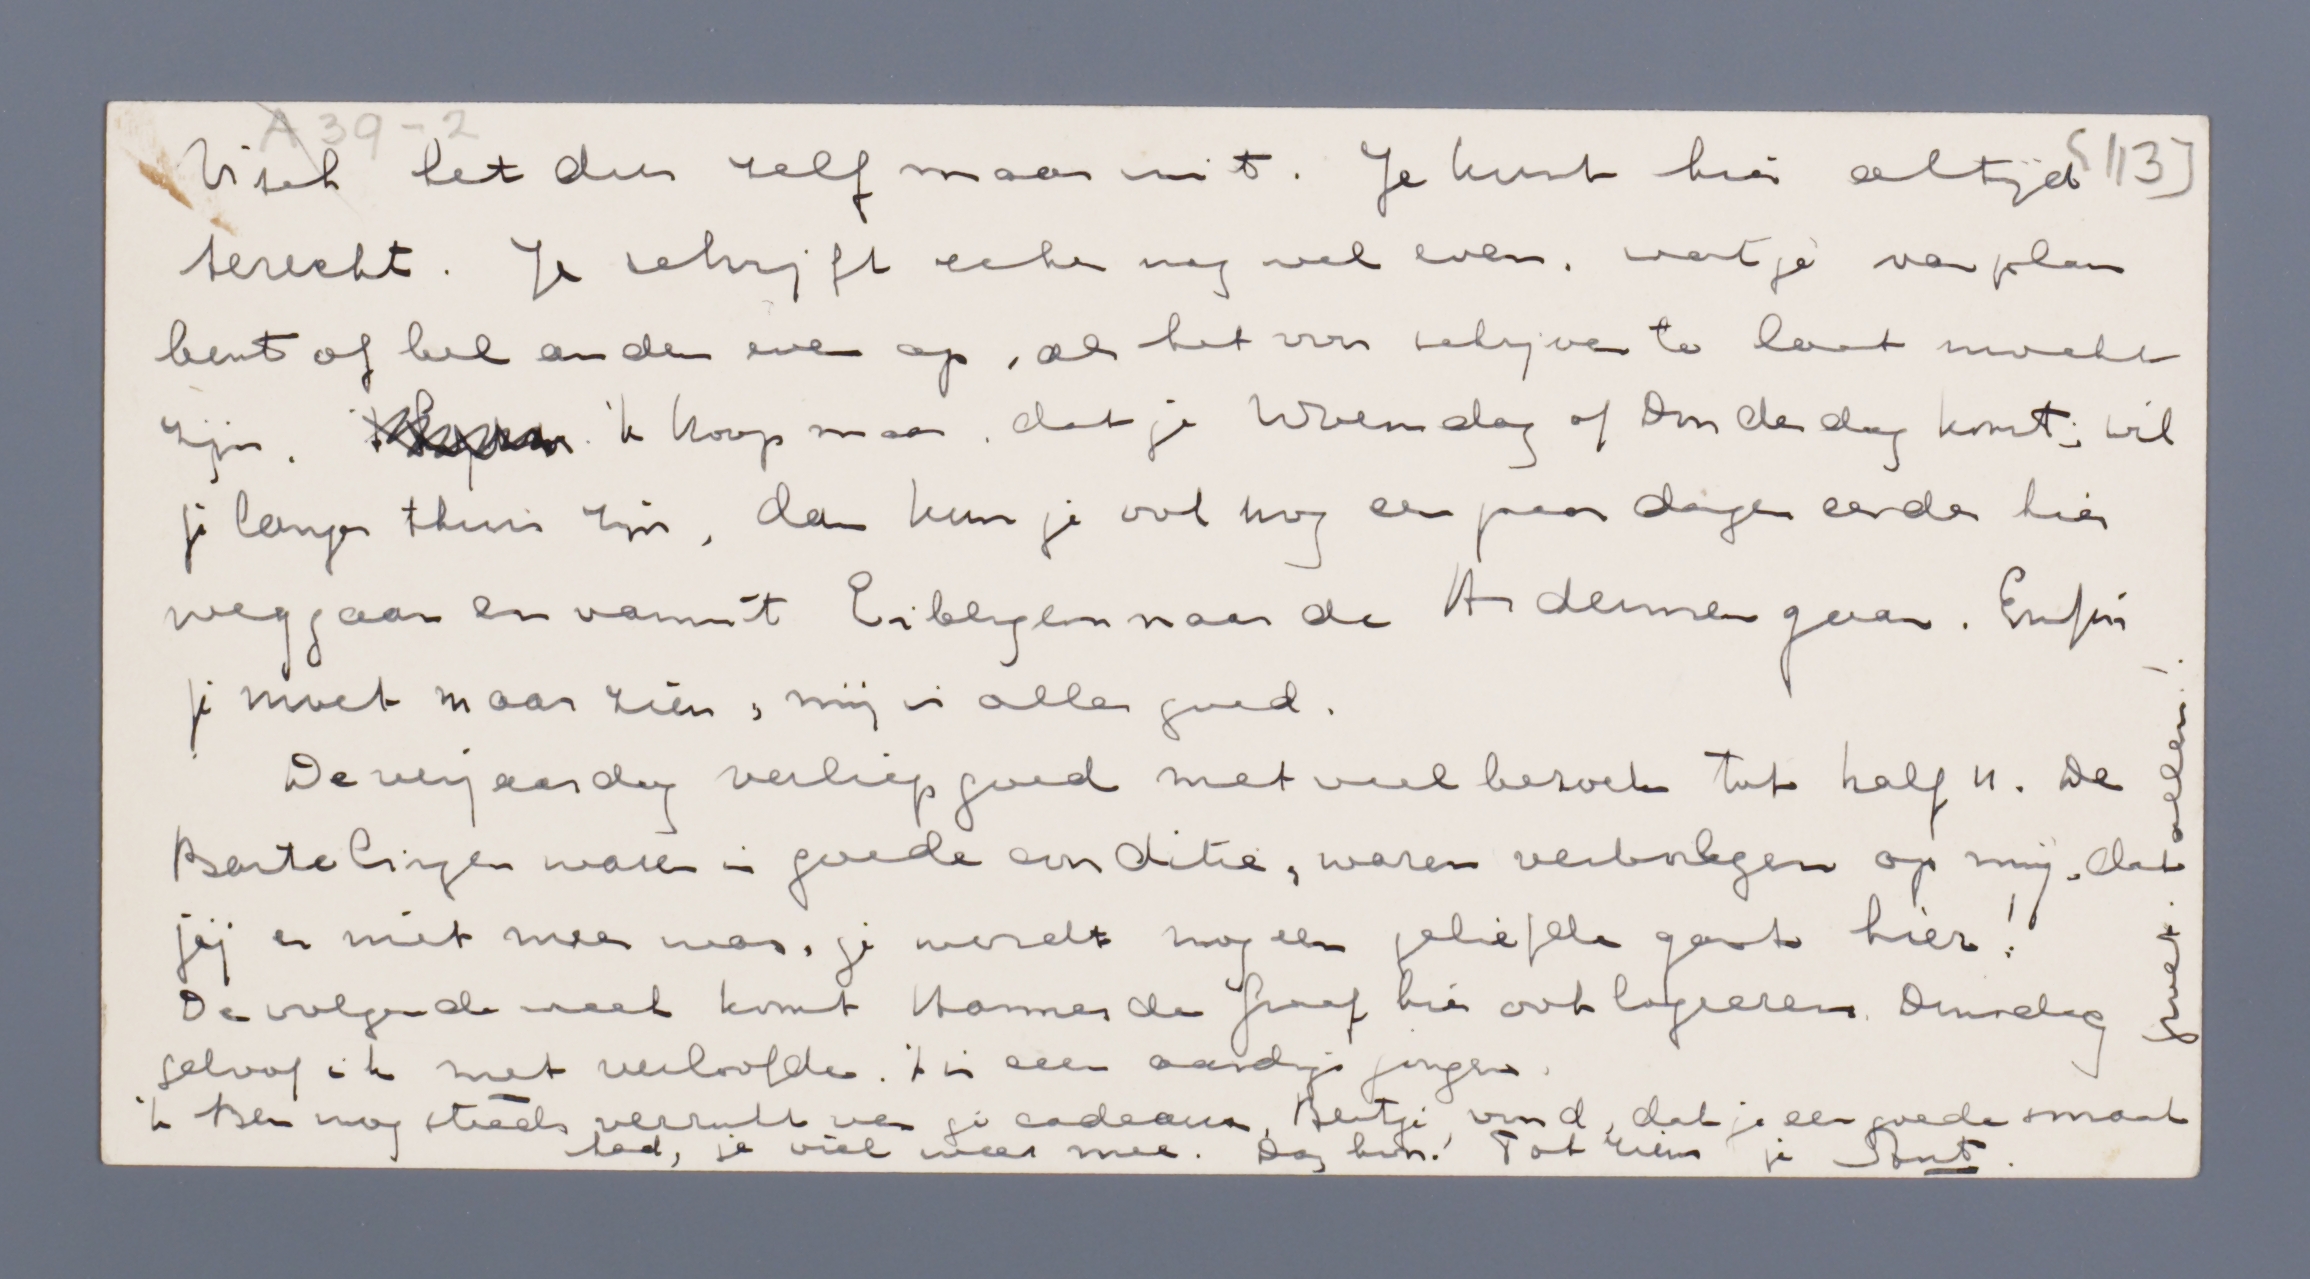 A39-2
[113]
Visch het dus zelf maar uit. Je kunt hier altijd
terecht. Je schrijft echter nog wel even, wat je van plan
bent of bel anders even op, als het voor schrijven te laat mocht
zijn. ik hoop maar, dat je Woensdag of Donderdag komt; wil
je langer thuis zijn, dan kun je ook nog een paar dagen eerder hier
weggaan en vanuit Eibergen naar de Ardennen gaan. Enfin
je moet maar zien, mij is alles goed.
De verjaardag verliep goed met veel bezoek tot half 11. De
Bartelingen waren in goede conditie, waren verbolgen op mij, dat
jij er niet meer was, je wordt nog een geliefde gast hier!
De volgende week komt Hannes de Graaf hier ook logeeren. Dinsdag
geloof ik met verloofde. 't is een aardige jongen.
ik Ben nog steeds verrukt van je cadeaux, Bertje vond, dat je een goede smaak
had, je viel weer mee. Dag hoor! Tot ziens je
groet. allen!